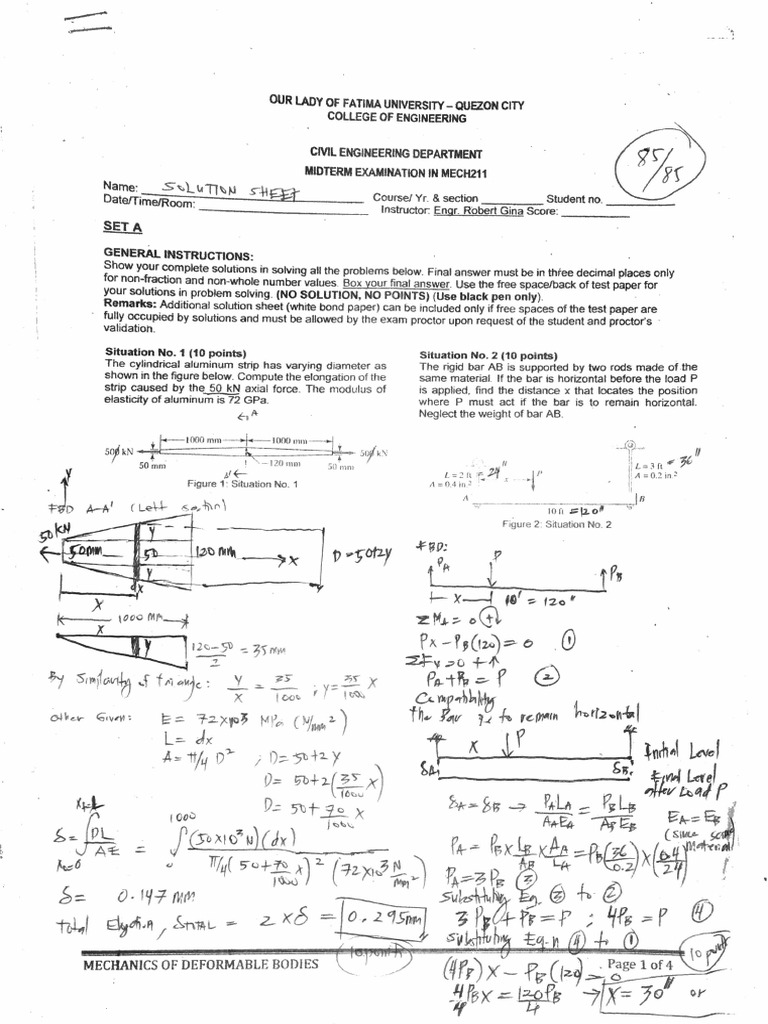 OUR LADY OF FATIMA UNIVERSITY – QUEZON CITY
COLLEGE OF ENGINEERING
CIVIL ENGINEERING DEPARTMENT
MIDTERM EXAMINATION IN MECH211
85/85
Name: SOLUTION SHEET
Course/ Yr. & section Student no.
Date/Time/Room:
Instructor: Engr. Robert Gina Score:
SET A
GENERAL INSTRUCTIONS:
Show your complete solutions in solving all the problems below. Final answer must be in three decimal places only
for non-fraction and non-whole number values. Box your final answer. Use the free space/back of test paper for
your solutions in problem solving. (NO SOLUTION, NO POINTS) (Use black pen only).
Remarks: Additional solution sheet (white bond paper) can be included only if free spaces of the test paper are
fully occupied by solutions and must be allowed by the exam proctor upon request of the student and proctor's
validation.
Situation No. 1 (10 points)
The cylindrical aluminum strip has varying diameter as
shown in the figure below. Compute the elongation of the
strip caused by the 50 kN axial force. The modulus of
elasticity of aluminum is 72 GPa.
A
1000 mm 1000 mm
50 kN 50 kN
50 mm 120 mm 50 mm
Figure 1: Situation No. 1
Y
FBD A-A' (Left section)
50 kN
50mm Y 50 120 mm X D = 50+2y
Y
dx
X
1000 mm
X
Y 120-50/2 = 35 mm
By Similarity of triangle: Y/X = 35/1000 ; y = 35/1000 X
Other Given: E = 72x10³ MPa (N/mm²)
L = dx
A = π/4 D² ; D = 50+2Y
D = 50+2(35/1000 X)
D = 50+ 70/1000 X
δ = ∫ PL/AE = ∫ (50x10³N)(dx) / π/4(50+70/1000 X)² (72x10³ N/mm²)
1000
0
δ = 0.147 mm
Total Elongation, δTOTAL = 2 x δ = 0.295mm
10 points
Situation No. 2 (10 points)
The rigid bar AB is supported by two rods made of the
same material. If the bar is horizontal before the load P
is applied, find the distance x that locates the position
where P must act if the bar is to remain horizontal.
Neglect the weight of bar AB.
L = 2 ft = 24"
A = 0.4 in²
x P
L = 3 ft = 36"
A = 0.2 in²
A B
10 ft = 120"
Figure 2: Situation No. 2
FBD:
PA P PB
x 10' = 120"
ΣMA = 0
Px – PB(120) = 0 ①
ΣFV = 0 +↑
PA + PB = P ②
Compatibility
the Bar is to remain horizontal
X P
δA δB
Initial Level
Final Level
after Load P
δA = δB → PALA/AAEA = PBLB/ABEB
EA = EB
(since same
material)
PA = PB x LB/AB x AA/LA = PB(36/0.2) x (0.4/24)
PA = 3PB ③
substituting Eq. ③ to ②
3PB + PB = P ; 4PB = P ④
substituting Eq.n ④ to ①
(4PB)X – PB(120) = 0
4PBX/4 = 120PB/4 → X = 30" or
10 points
MECHANICS OF DEFORMABLE BODIES
Page 1 of 4